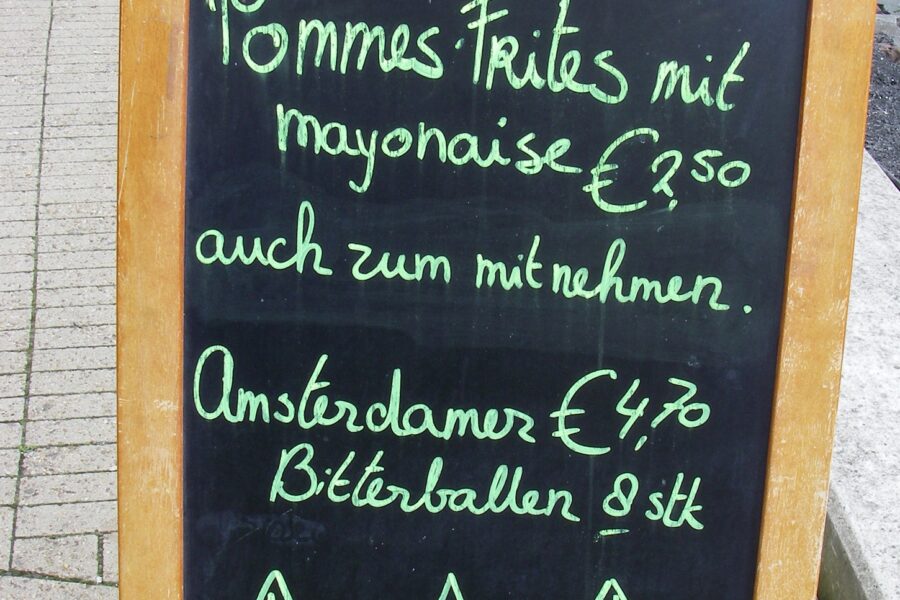 Pommes Frites mit
mayonaise € 2,50
auch zum mitnehmen.
Amsterdamer € 4,70
Bitterballen 8 stk